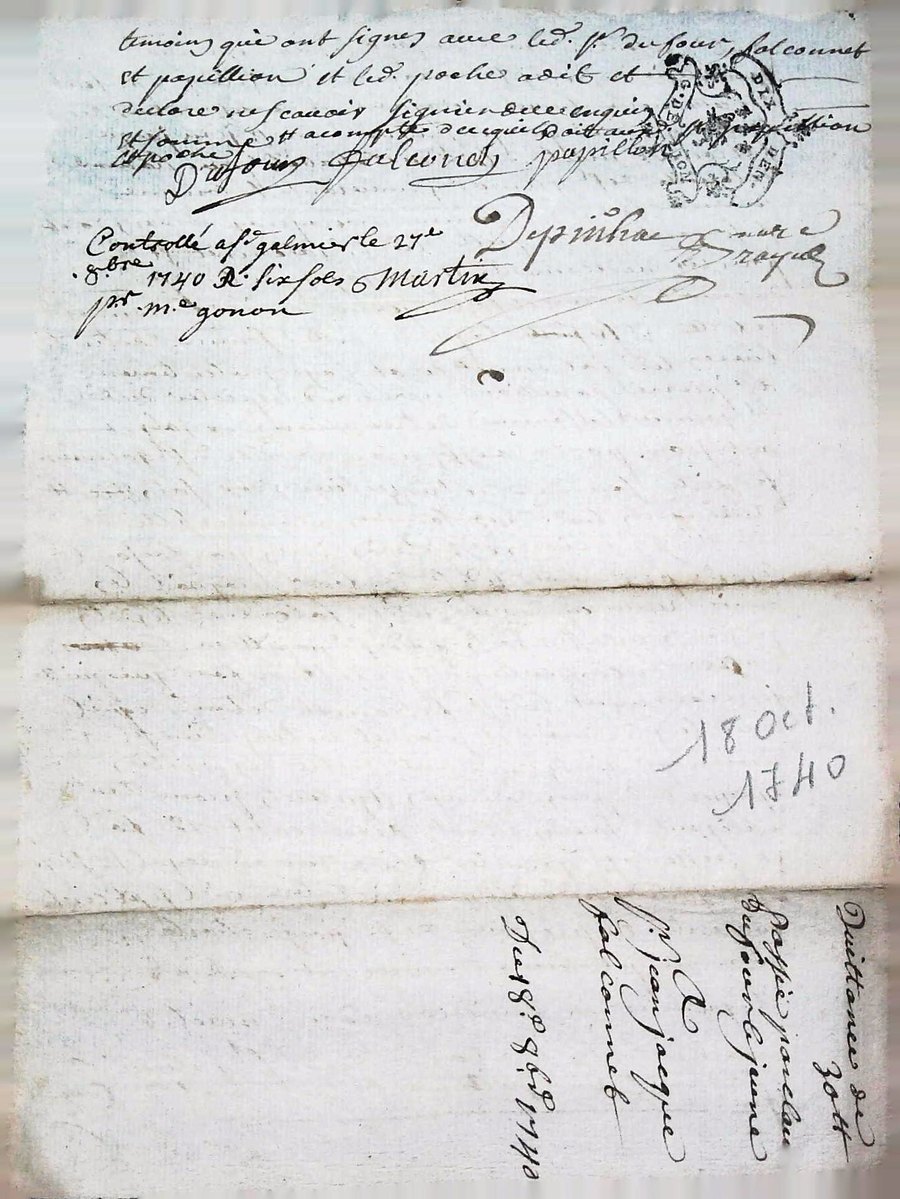 temoins que ont signes avec led. sr. dufour, falconnet
et papillion et led. poche a dit et
declare ne scavoir signier de ce enquis
et somme et acompte duequel doit aud. sr papillion
et poche
Dufour falconet papillon
G. DE LION DIX DEN.
Depiuhac nore
Royal
Controllé a st. galmier le 27e
8bre 1740 R. six sols Martin
pr. me gonon
18 Oct.
1740
Quittance de
30ll
passée par clau
Dufour le jeune
A
sr. jean jacque
falconnet
Du 18e 8bre 1740